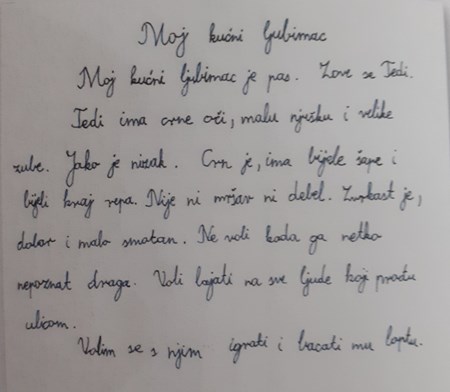 Moj kućni ljubimac
Moj kućni ljubimac je pas. Zove se Tedi.
Tedi ima crne oči, malu njušku i velike
zube. Jako je nizak. Crn je, ima bijele šape i
bijeli kraj repa. Nije ni mršav ni debel. je,
dobar i malo smotan. Ne voli kada ga netko
nepoznat draga. Voli lajati na sve ljude koji prođu
ulicom.
Volim se s njim igrati i bacati mu loptu.